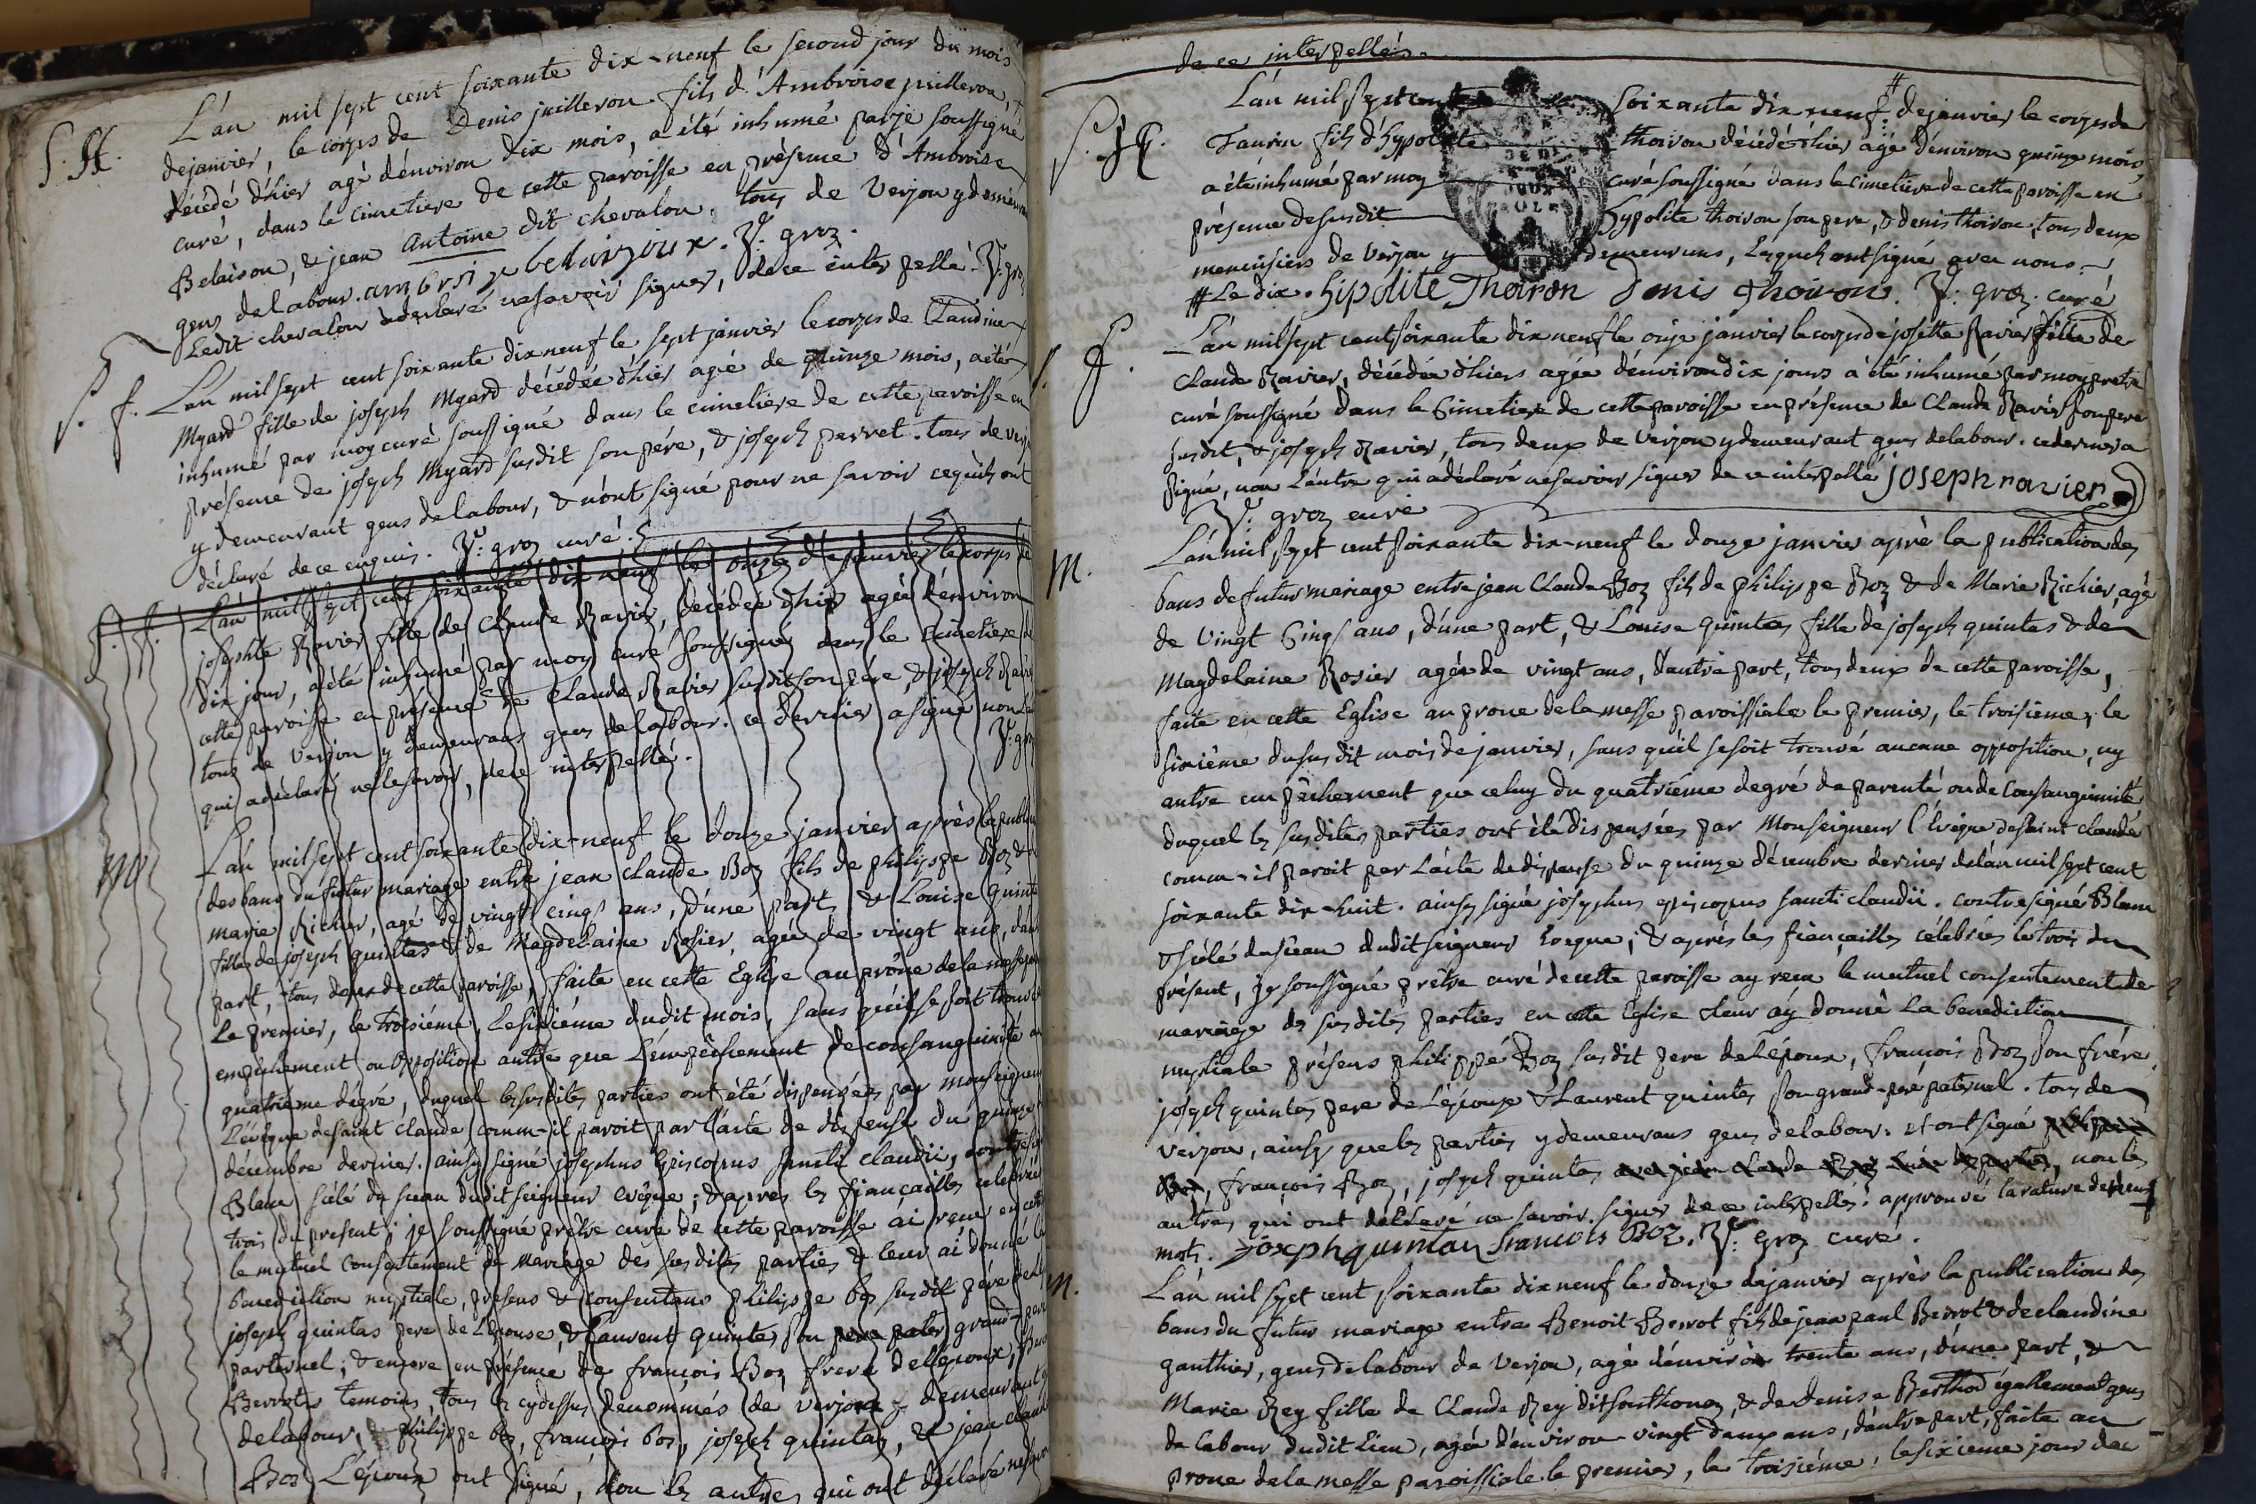 L'án mil sept cent soixante dix-neuf le second jour du mois
S. H.
dejanvier, le corps de Denis juilleron fils d'Ambroise juilleron,
décédé d'hier agé d'environ dix mois, a été inhumé par je soussigné
curé, dans le cimetiere de cette paroisse en présence d'Ambroise
Belaison, & jean Antoine dit chevalon, tous de Verjon y demeurans
gens delabour. ambrsi ze belaizoux. groz.
Ledit chevalon adeclaré nesavoir signer, de ce interpellé
S. f.
L'an mil sept cent soixante dix neuf le sept janvier le corps de Claudine
Myard fille de joseph Myard décédée d'hier agée de quinze mois, a été
inhumé par moy curé soussigné dans le cimetiere de cette paroisse en
présence de joseph Myard susdit son pére, & joseph perret. tous de verjon
y demeurant gens delabour, & n'ont signé pour ne savoir cequils ont
déclaré de ce enquis. groz curé.
S. f.
L'án mil sept cent soixante dix neuf le onze de janvier le corps de
josephte Ravier fille de Claude Ravier, décédée d'hier agée d'environ
dix jour, a été inhumé par moy curé soussigné dans le cimetiere de
cette paroisse en présence de Claude Ravier susdit son pére, & joseph Ravier
tous de Verjon y demeurans gens delabour. ce dernier a signé non
qui a déclaré nele savoir, de ce interpellé.
M
L'án mil sept cent soixante dix-neuf le douze janvier après la publication
des bans du futur mariage entre jean claude Boz fils de philippe Boz & de
marie Richier, agé de vingt cinq ans, d'une part, & Louise quintas
fille de joseph quintas & de Magdelaine Rosier, agée de vingt ans, d'autre
part, tous deux de cette paroisse, faite en cette Eglise au prône dela messe
Le premier, le troisiéme, le sixiéme dudit mois, sans qu'il se soit trouvé
empechement ou opposition autre que l'empêchement de consanguinité au
quatriéme dégré, duquel les susdites parties ont été dispensées par monseigneur
l'évêque desaint claude comm-il paroit par l'acte de dispense du quinze
décembre dernier. ainsy signé josephus Episcopus sancti claudii, contresigné
Blanc scélé du sceau dudit seigneur evêque; & aprés les fiançailles celebrées
trois du present; je soussigné prêtre curé de cette paroisse ai reçu en cette
le mutuel consentement de Mariage des susdites parties & leur ai donné la
benediction nuptiale, présens & consentans philippe boz susdit pére de
joseph quintas pere de l'épouse, & Laurent quintas son pere pater grand-pere
parternel; & encore en présence de françois Boz frere de l'époux,
Berrot temoins, tous les cydessus denommés de verjon y demeurant
delabour, & philippe boz, françois bos, joseph quintaz, & jean claude
Boz L'époux ont signé, non les autres qui ont déclaré nesavoir
de ce interpellés.
S. G.
L'án mil sept cent soixante dix neuf # de janvier le corps de
Taurin fils d'hypolite thoiron décédé d'hier agé d'environ quinze mois
a été inhumé par moy curé soussigné dans lecimetiere de cette paroisse en
présence de susdit hypolite thoiron son pere, & denis thoiron, tous deux
menuisiers de verjon y demeurans, Lesquels ont signé avec nous.
# Le dix. hipolite Thoiron Denis thoiron. groz. curé
S. f.
L'án mil sept cent soixante dix neuf le onze janvier le corps de josette Ravier fille de
Claude Ravier, décédée d'hiers agée d'environ dix jours à été inhumé par moy pretre
curé soussigné dans le Cimetiere de cette paroisse en présence de Claude Ravier son pere
susdit, & joseph Ravier, tous deux de verjon y demeurant gens delabour. ce dernier a
signé, non l'autre qui a déclaré ne savoir signer de ce interpellé, joseph ravier
groz curé
M.
L'an mil sept cent soixante dix-neuf le douze janvier aprè la publication des
bans de futur mariage entre jean Claude Boz fils de philippe Boz & de Marie Richier, agé
de vingt Cinq ans, d'une part, & Louise quintas fille de joseph quintas & de
Magdelaine Rosier agée de vingt ans, d'autre part, tous deux de cette paroisse,
faite en cette Eglise au prone dela messe paroissiale le premier, le troisieme, le
sixiéme du susdit mois de janvier, sans qu'il se soit trouvé aucune opposition, ny
autre empêchement que celuy du quatriéme degré de parenté ou de consanguinité
duquel les susdites parties ont été dispensées par Monseigneur l'évêque de saint claude
comm-il paroit par l'acte de dispense du quinze décembre dernier de l'án mil sept cent
soixante dix-huit. ainsy signé josephus episcopus sancti claudii. contresigné Blanc
& scélé du sceau dudit seigneur Evêque; & aprés les fiançailles célébrées le trois du
présent, je soussigné prêtre curé de cette paroisse ay reçu le mutuel consentement de
mariage des susdites parties en cette Eglise & leur ay donné la benediction
nuptiale présens philippe Boz susdit pere de l'époux, françois Boz son frére,
joseph quintas pere de l'épouse & Laurent quintas son grand-pére paternel. tous de
verjon, ainsy que les parties y demeurans gens delabour. et ont signé philippe
Boz, françois Boz, joseph quintas avec jean claude Boz, non les
autres qui ont déclaré ne savoir signer de ce interpellés: approuvé la rature de neuf
mots. joseph quintau francois BOZ. Groz curé.
M.
L'án mil sept cent soixante dix neuf le douze de janvier après la publication des
bans du futur mariage entre Benoit Berrot fils de jean paul Berrot & de claudine
gauthier, gens delabour de verjon, agé d'environ trente ans, d'une part, &
Marie Rey fille de Claude Rey dit southonnaz, & de Denise Berthod également gens
de labour dudit lieu, agée d'environ vingt deux ans, d'autre part, faite au
prone dela messe paroissiale le premier, le troisiéme, le sixieme jour de